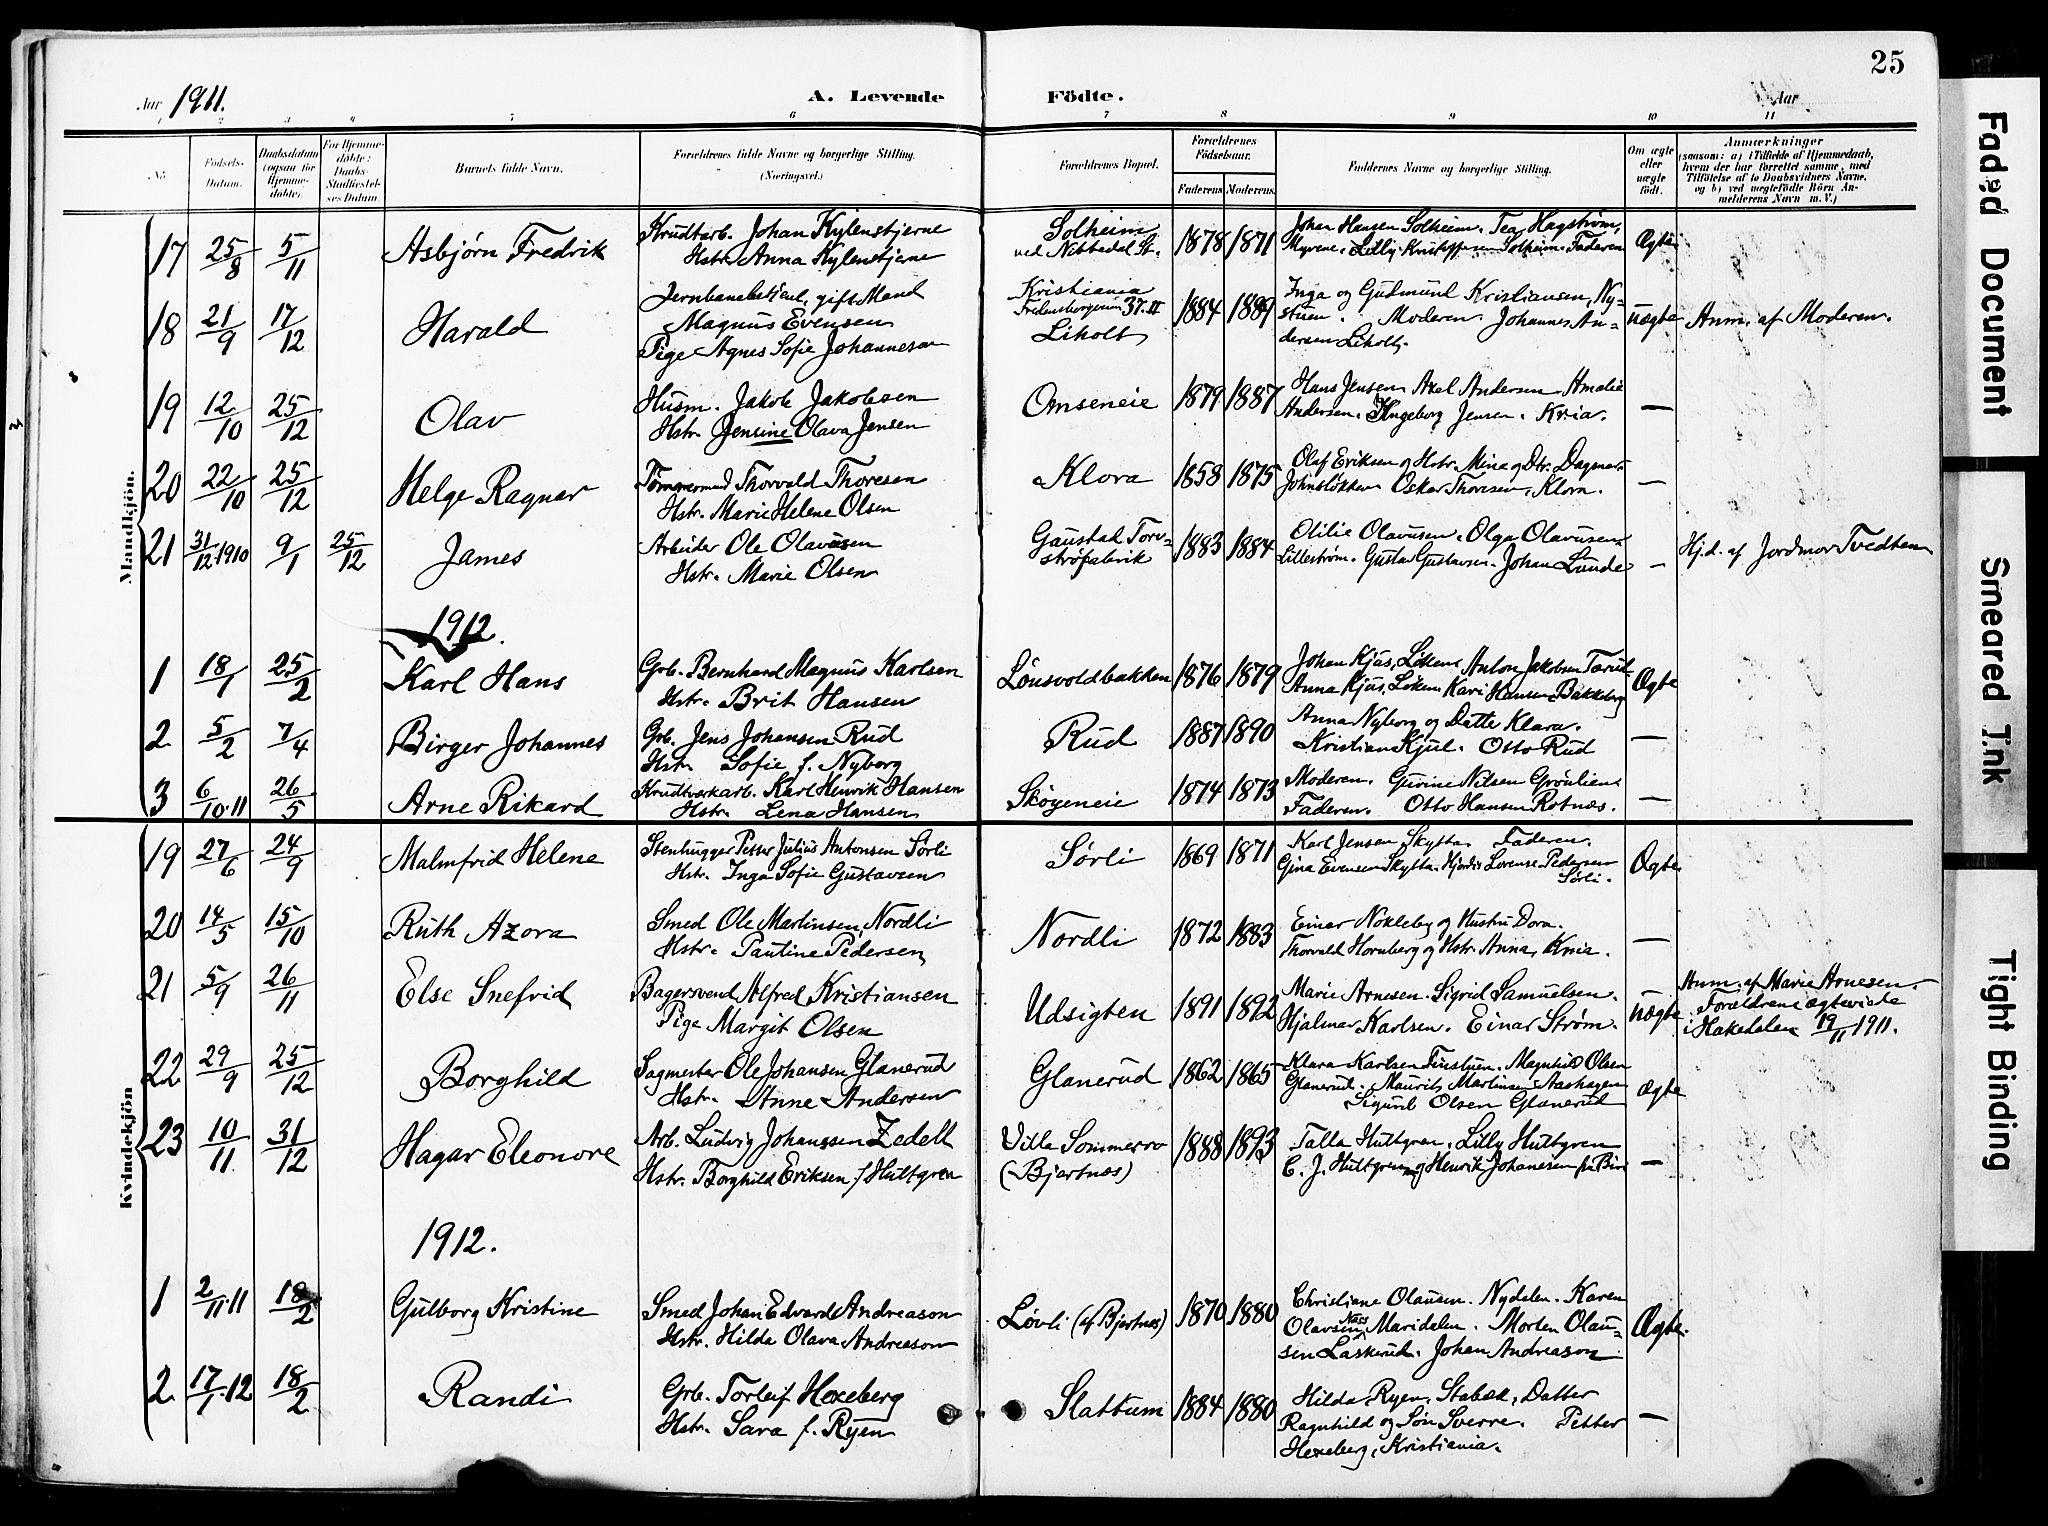 25
Aar 1911.
A. Levende Födte.
Aar
1 2 3 4 5 6 7 8 9 10 11
No
Födsels-Datum.
Daabsdatum (ogsaa for Hjemme-döbte).
For Hjemme-döbte: Daabs-Stadfæstel-ses Datum.
Barnets fulde Navn.
Forældrenes fulde Navne og borgerlige Stilling.
(Næringsvei.)
Forældrenes Bopæl.
Forældrenes Födselsaar.
Faderens Moderens
Faddernes Navne og borgerlige Stilling.
Om ægte eller uægte födt.
Anmærkninger
(saasom: a) i Tilfælde af Hjemmedaab,
hvem der har forrettet samme, med
Tilföielse af to Daabsvidners Navne,
og b) ved uægtefödte Börn An-
melderens Navn m. V.)
Mandkjön.
17 25/8 5/11 Asbjørn Fredrik Krudtarb. Johan Kylenstjerne Solheim 1878 1871 Johan Hansen Solheim. Tea Hagstrøm, Ægte
Hstr. Anna Kylenstjerne ved Nittedal St. Myrene. Lilly Kristoffersen Solheim. Faderen
18 21/9 17/12 Harald Jernbanebetjent, gift Mand Kristiania 1884 1889 Inga og Gudmund Kristiansen, Ny- uægte Anm. af Moderen.
Magnus Evensen 37.II stuen. Moderen. Johannes An-
Pige Agnes Sofie Johannesen Liholt dersen Liholt.
19 12/10 25/12 Olav Husm. Jakob Jakobsen Onseneie 1879 1887 Hans Jensen Axel Andersen Amalie —
Hstr. Jensine Olava Jensen Andersen. Ingeborg Jensen. Kria.
20 22/10 25/12 Helge Ragnar Tømmermand Thorvald Thoresen Klora 1858 1875 Olaf Eriksen og Hstr. Mina og Dtr. Dagmar —
Hstr. Marie Helene Olsen Johnsløkken Oskar Thoresen, Klora.
21 31/12.1910 9/1 25/12 James Arbeider Ole Olavesen Gaustad Torv- 1883 1884 Otilie Olavesen. Olga Olavesen — Hj.d. af Jordmor Tvedten
Hstr. Marie Olsen strøfabrik Lillestrøm. Gustav Gustavsen. Johan Lunde
1912.
1 18/1 25/2 Karl Hans Grb. Bernhard Magnus Karlsen Lønsvoldbakken 1876 1879 Johan Kjus, Løken Anton Jakobsen Ægte
Hstr. Brit Hansen Anna Kjus, Løken Kari Hansen Bakkeberg
2 5/2 7/4 Birger Johannes Grb. Jens Johansen Rud Rud 1887 1890 Anna Nyborg og Datte Klara. —
Hstr. Sofie f. Nyborg Kristian Kjul. Otto Rud
3 6/10.11 26/5 Arne Rikard Krudtværkarb. Karl Henrik Hansen Skøyeneie 1874 1873 Moderen. Gurine Nilsen Grønlien —
Hstr. Lena Hansen Faderen. Otto Hansen Rotnæs.
Kvindekjön
19 27/6 24/9 Malmfrid Helene Stenhugger Petter Julius Antonsen Sørli Sørli 1869 1871 Karl Jensen Skytta. Faderen. Ægte
Hstr. Inga Sofie Gustavsen Gina Evensen Skytta. Hjørdis Lorense Pedersen
Sørli.
20 14/5 15/10 Ruth Azora Smed Ole Martinsen, Nordli Nordli 1872 1883 Einar Nokleby og Hustru Dora. —
Hstr. Pauline Pedersen Thorvald Hornberg og Hstr. Anna, Kria.
21 5/9 26/11 Else Snefrid Bagersvend Alfred Kristiansen Udsigten 1891 1892 Marie Arnesen. Sigrid Samuelsen. uægte Anm. af Marie Arnesen.
Pige Margit Olsen Hjalmar Karlsen. Einar Strøm. Forældrene ægteviede
i Hakedalen 19/11 1911.
22 29/9 25/12 Borghild Sagmester Ole Johansen Glanerud Glanerud 1862 1865 Klara Karlsen Tinstuen. Magnhild Olsen ægte
Hstr. Anne Andersen Glanerud. Maurits Martinsen Aashagen
Sigurd Olsen Glanerud
23 10/11 31/12 Hagar Eleonore Arb. Ludvig Johanssen Zedell Villa Sommerro 1888 1893 Talla Hultgren. Lilly Hultgren —
Hstr. Borghild Eriksen f. Hultgren (Bjertnæs) C. J. Hultgren og Henrik Johanesen
1912.
1 2/11.11 18/2 Gulborg Kristine Smed Johan Edvard Andreason Løvli (af Bjertnæs) 1870 1880 Christiane Olausen. Nydalen. Karen Ægte.
Hstr. Hilda Olava Andreason Olavsen Næss Maridalen. Morten Olau-
sen Laskerud. Johan Andreason
2 17/1.12 18/2 Randi Grb. Torleif Hexeberg Slattum 1884 1880 Hilda Ryen, Stabæk, Datter —
Hstr. Sara f. Ryen Ragnhild og Søn Sverre. Petter
Hexeberg, Kristiania.
Faded Document
Smeared Ink
Tight Binding